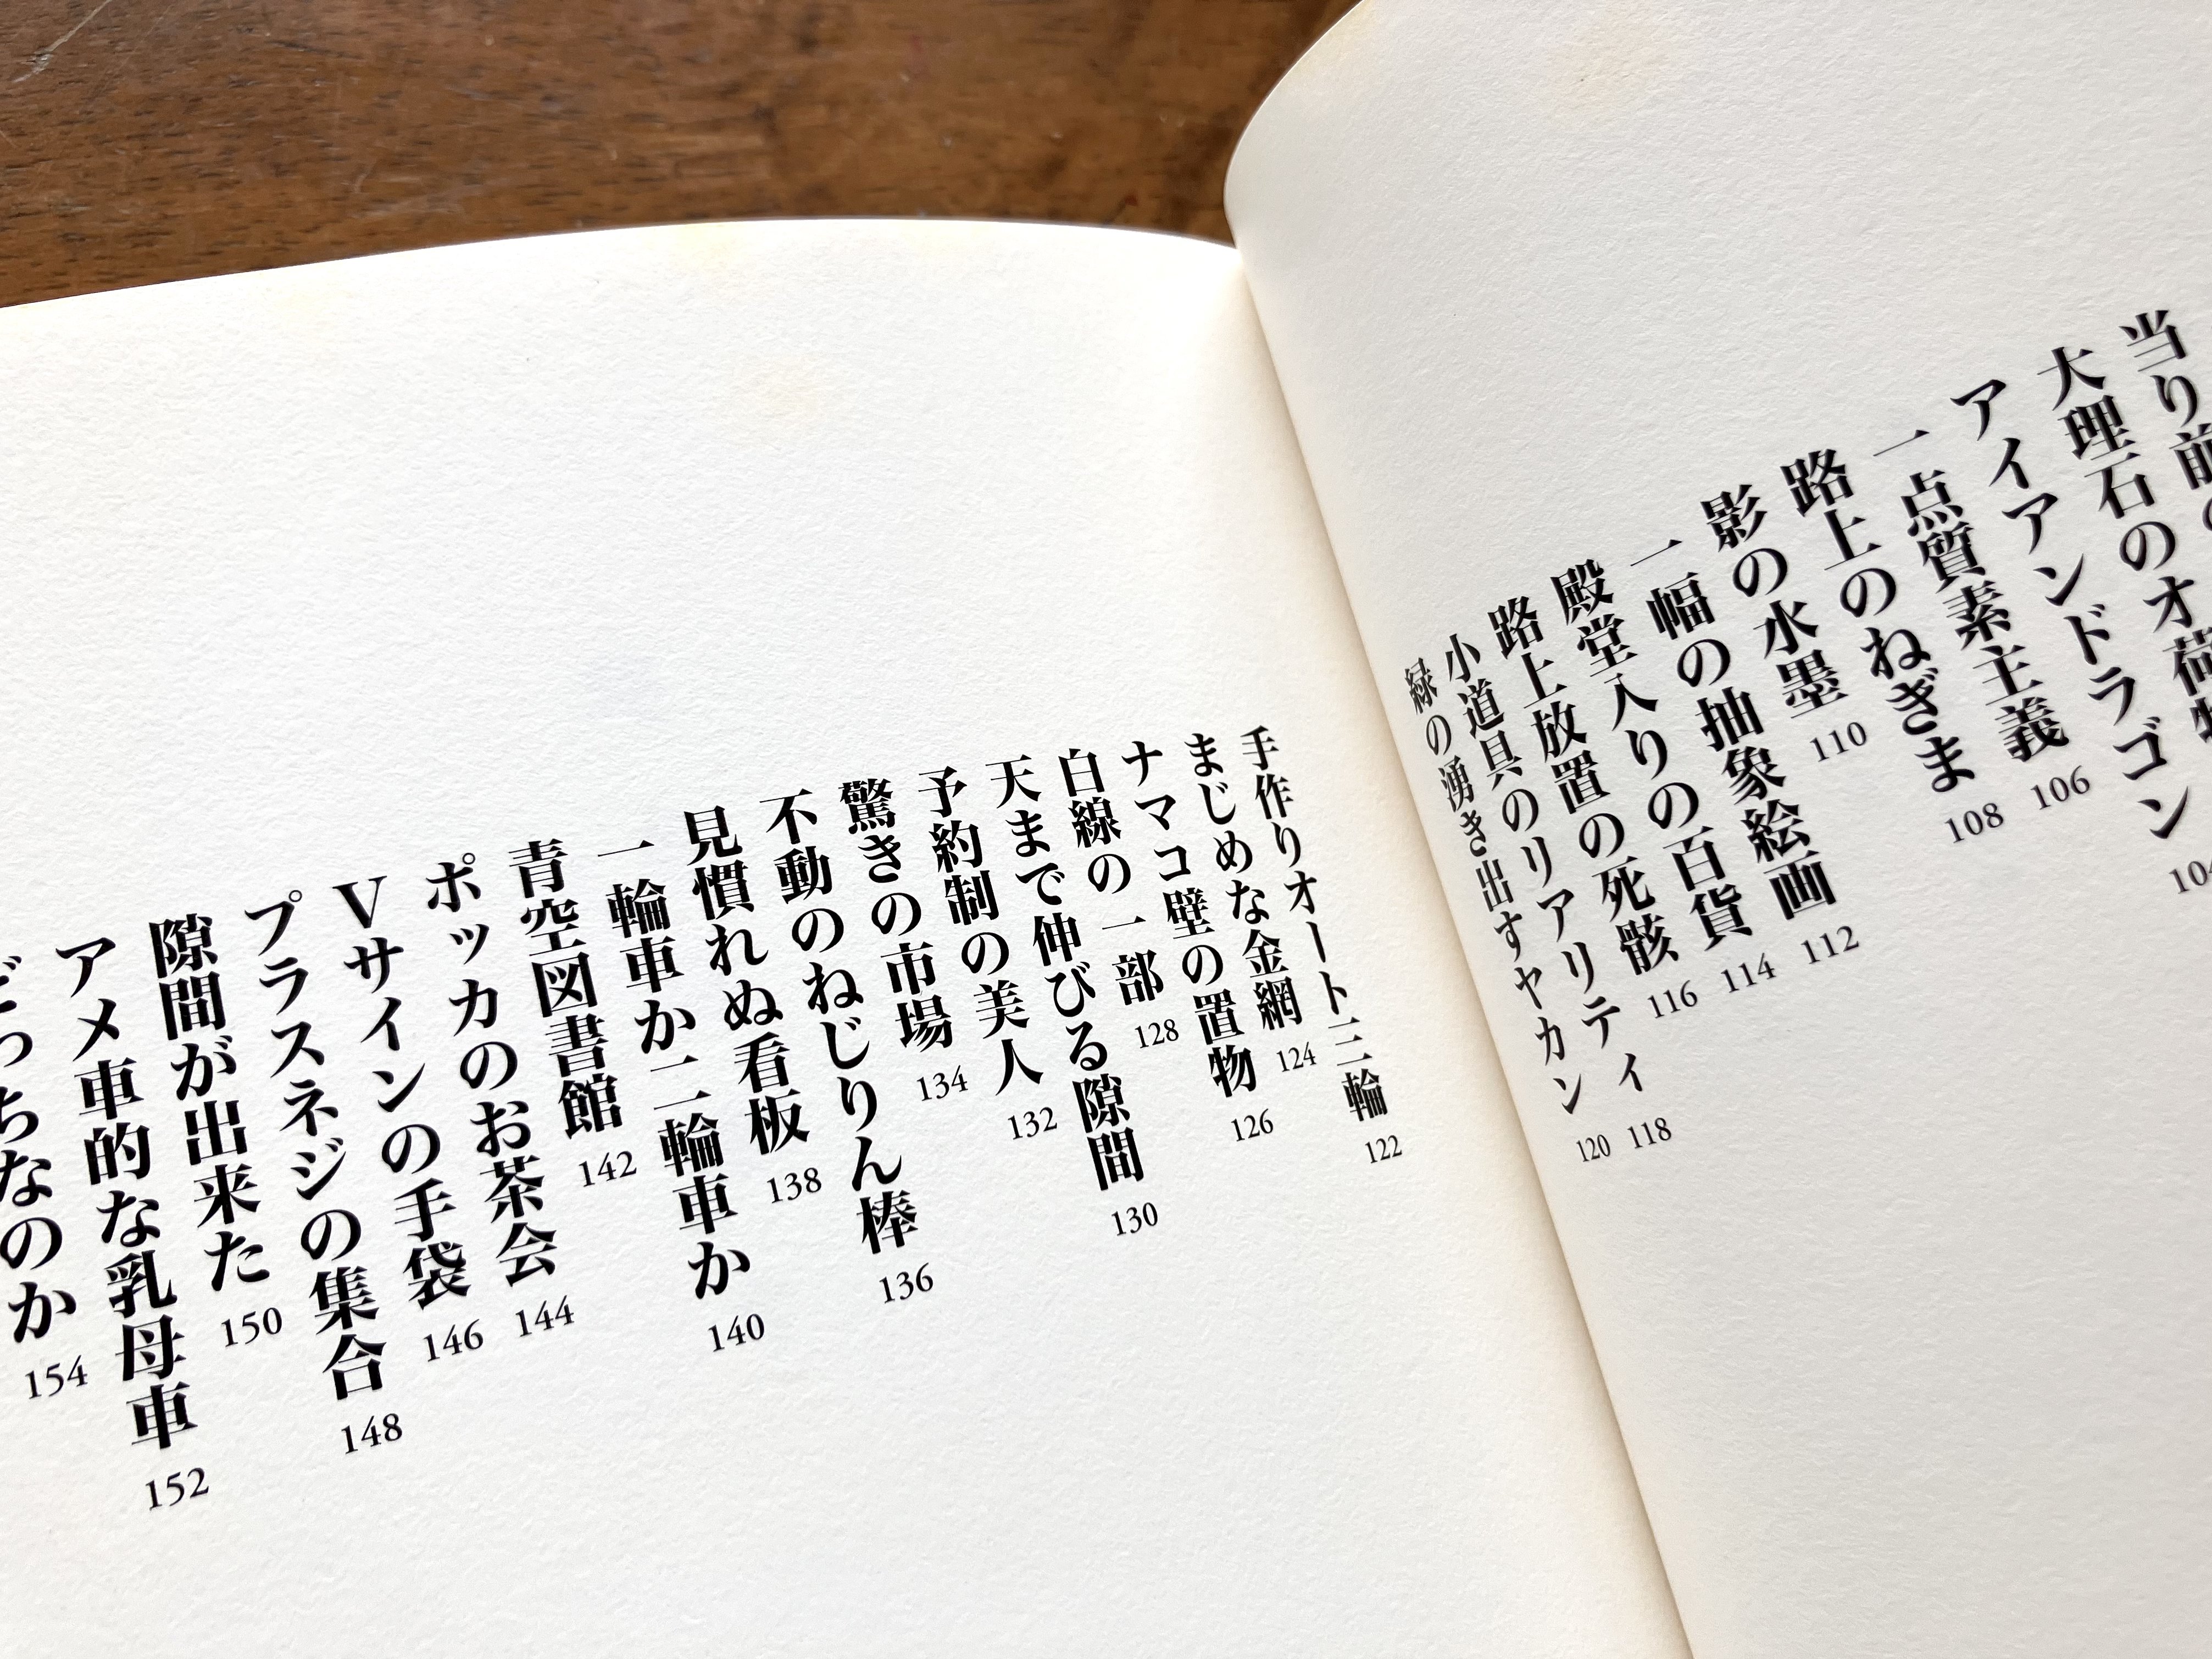 当り前の
大理石のオ荷物
アイアンドラゴン 104
一点質素主義 106
路上のねぎま 108
影の水墨 110
一幅の抽象絵画 112
殿堂入りの百貨 114
路上放置の死骸 116
小道具のリアリティ 118
緑の湧き出すヤカン 120
手作りオート三輪 122
まじめな金網 124
ナマコ壁の置物 126
白線の一部 128
天まで伸びる隙間 130
予約制の美人 132
驚きの市場 134
不動のねじりん棒 136
見慣れぬ看板 138
一輪車か二輪車か 140
青空図書館 142
ポッカのお茶会 144
Vサインの手袋 146
プラスネジの集合 148
隙間が出来た 150
アメ車的な乳母車 152
どっちなのか 154